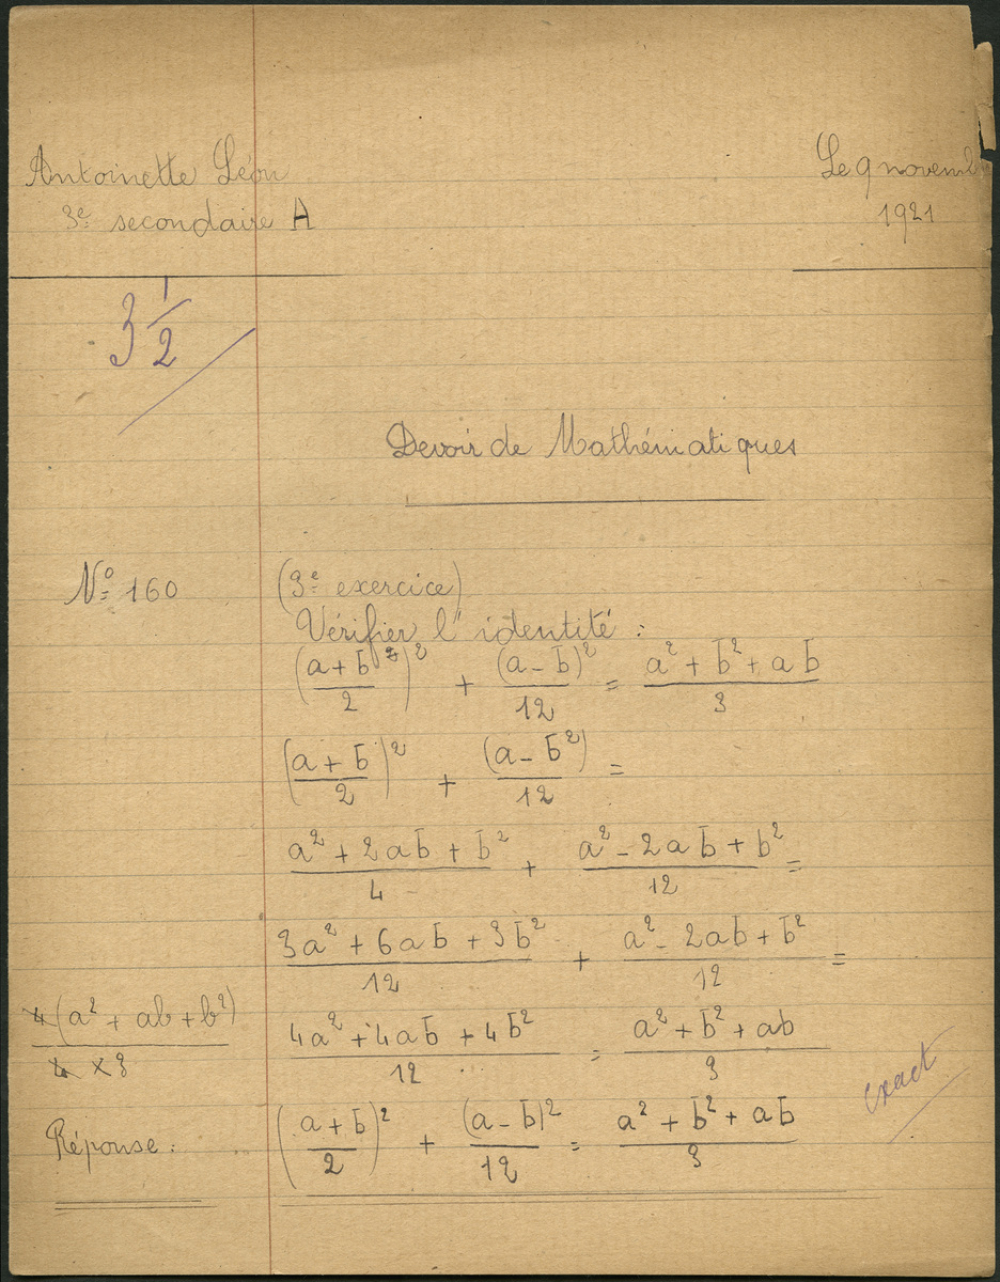 Antoinette Léon
Le 9 novemb
3e secondaire A
1921
3 1/2
Devoir de Mathématiques
No 160 (3e exercice)
Vérifier l'identité :
((a+b)/2)² + (a-b)²/12 = (a² + b² + ab)/3
((a+b)/2)² + (a-b²)/12 =
(a² + 2ab + b²)/4 + (a² - 2ab + b²)/12 =
(3a² + 6ab + 3b²)/12 + (a² - 2ab + b²)/12 =
4(a² + ab + b²)/(4 × 3)
(4a² + 4ab + 4b²)/12 = (a² + b² + ab)/3
exact
Réponse : ((a+b)/2)² + (a-b)²/12 = (a² + b² + ab)/3